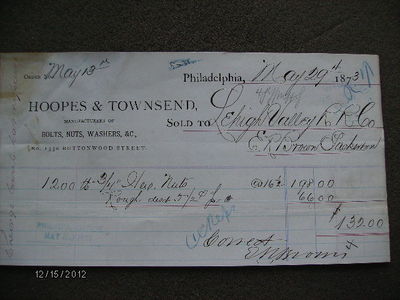 Order May 13th
Philadelphia, May 29th 1873
HOOPES & TOWNSEND,
MANUFACTURERS OF
BOLTS, NUTS, WASHERS, &C.,
No. 1330 BUTTONWOOD STREET.
SOLD TO Lehigh Valley R. R. Co
1200 lb 3/4" Hex. Nuts @16½ 198.00
Rough disct 5½ ¢ p # 66.00
$132.00
Correct
4
12/15/2012